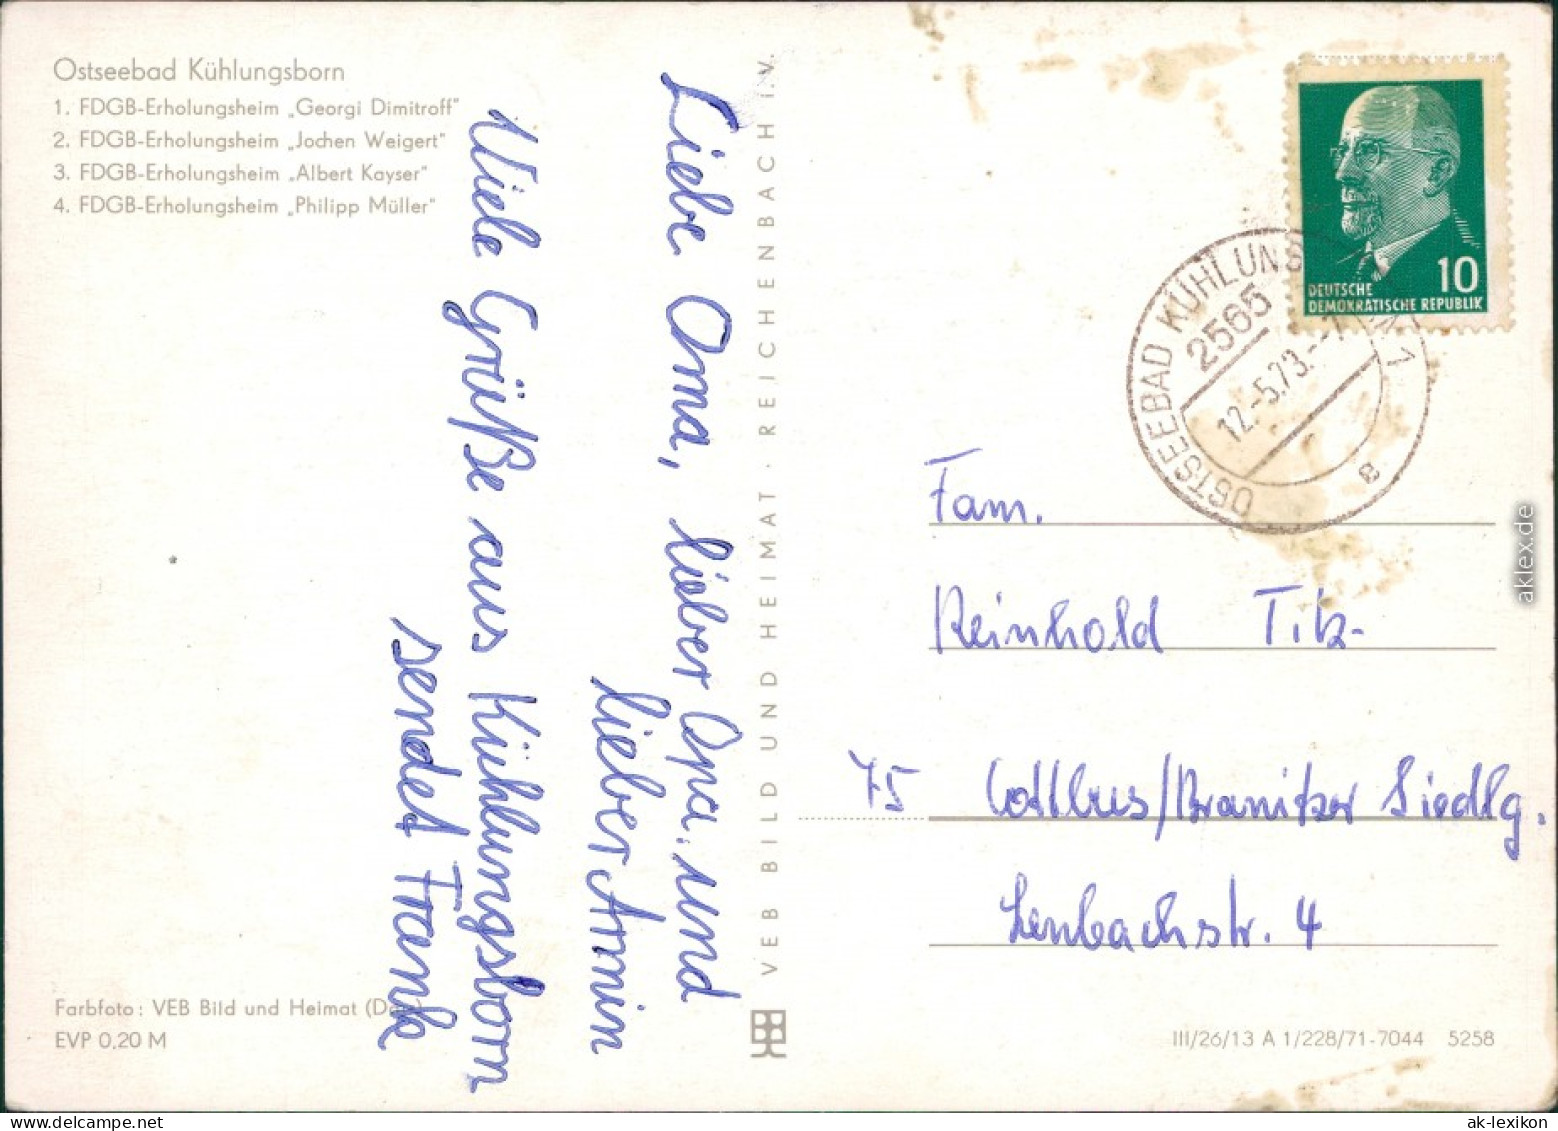 Ostseebad Kühlungsborn
1. FDGB-Erholungsheim „Georgi Dimitroff"
2. FDGB-Erholungsheim „Jochen Weigert"
3. FDGB-Erholungsheim „Albert Kayser"
4. FDGB-Erholungsheim „Philipp Müller"
Liebe Oma, lieber Opa und
lieber Armin
Viele Grüße aus Kühlungsborn
sendet Frank
Farbfoto: VEB Bild und Heimat
EVP 0,20 M
VEB BILD UND HEIMAT · REICHENBACH I.V.
10
DEUTSCHE
DEMOKRATISCHE REPUBLIK
OSTSEEBAD KÜHLUNGS
2565
12.-5.73.-7
a
Fam.
Reinhold Titz-
75 Cottbus/Branitzer Siedlg.
Lenbachstr. 4
III/26/13 A 1/228/71-7044 5258
aklex.de
www.delcampe.net
ak-lexikon